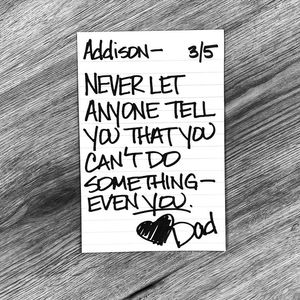 Addison— 3/5
NEVER LET
ANYONE TELL
YOU THAT YOU
CAN'T DO
SOMETHING—
EVEN YOU.
Dad